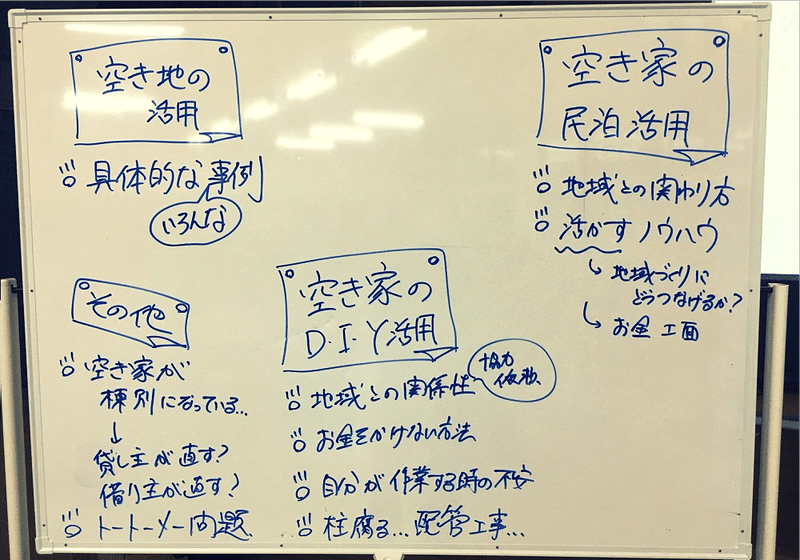 空き地の
活用
具体的な事例
いろんな
空き家の
民泊活用
地域との関わり方
活かすノウハウ
地域づくりに
どうつなげるか?
お金工面
その他
空き家が
棟別になっている…
貸し主が直す?
借り主が直す?
トートーメー問題
空き家の
D・I・Y活用
地域との関係性
協力
お金をかけない方法
自分が作業する時の不安
柱腐る…配管工事…